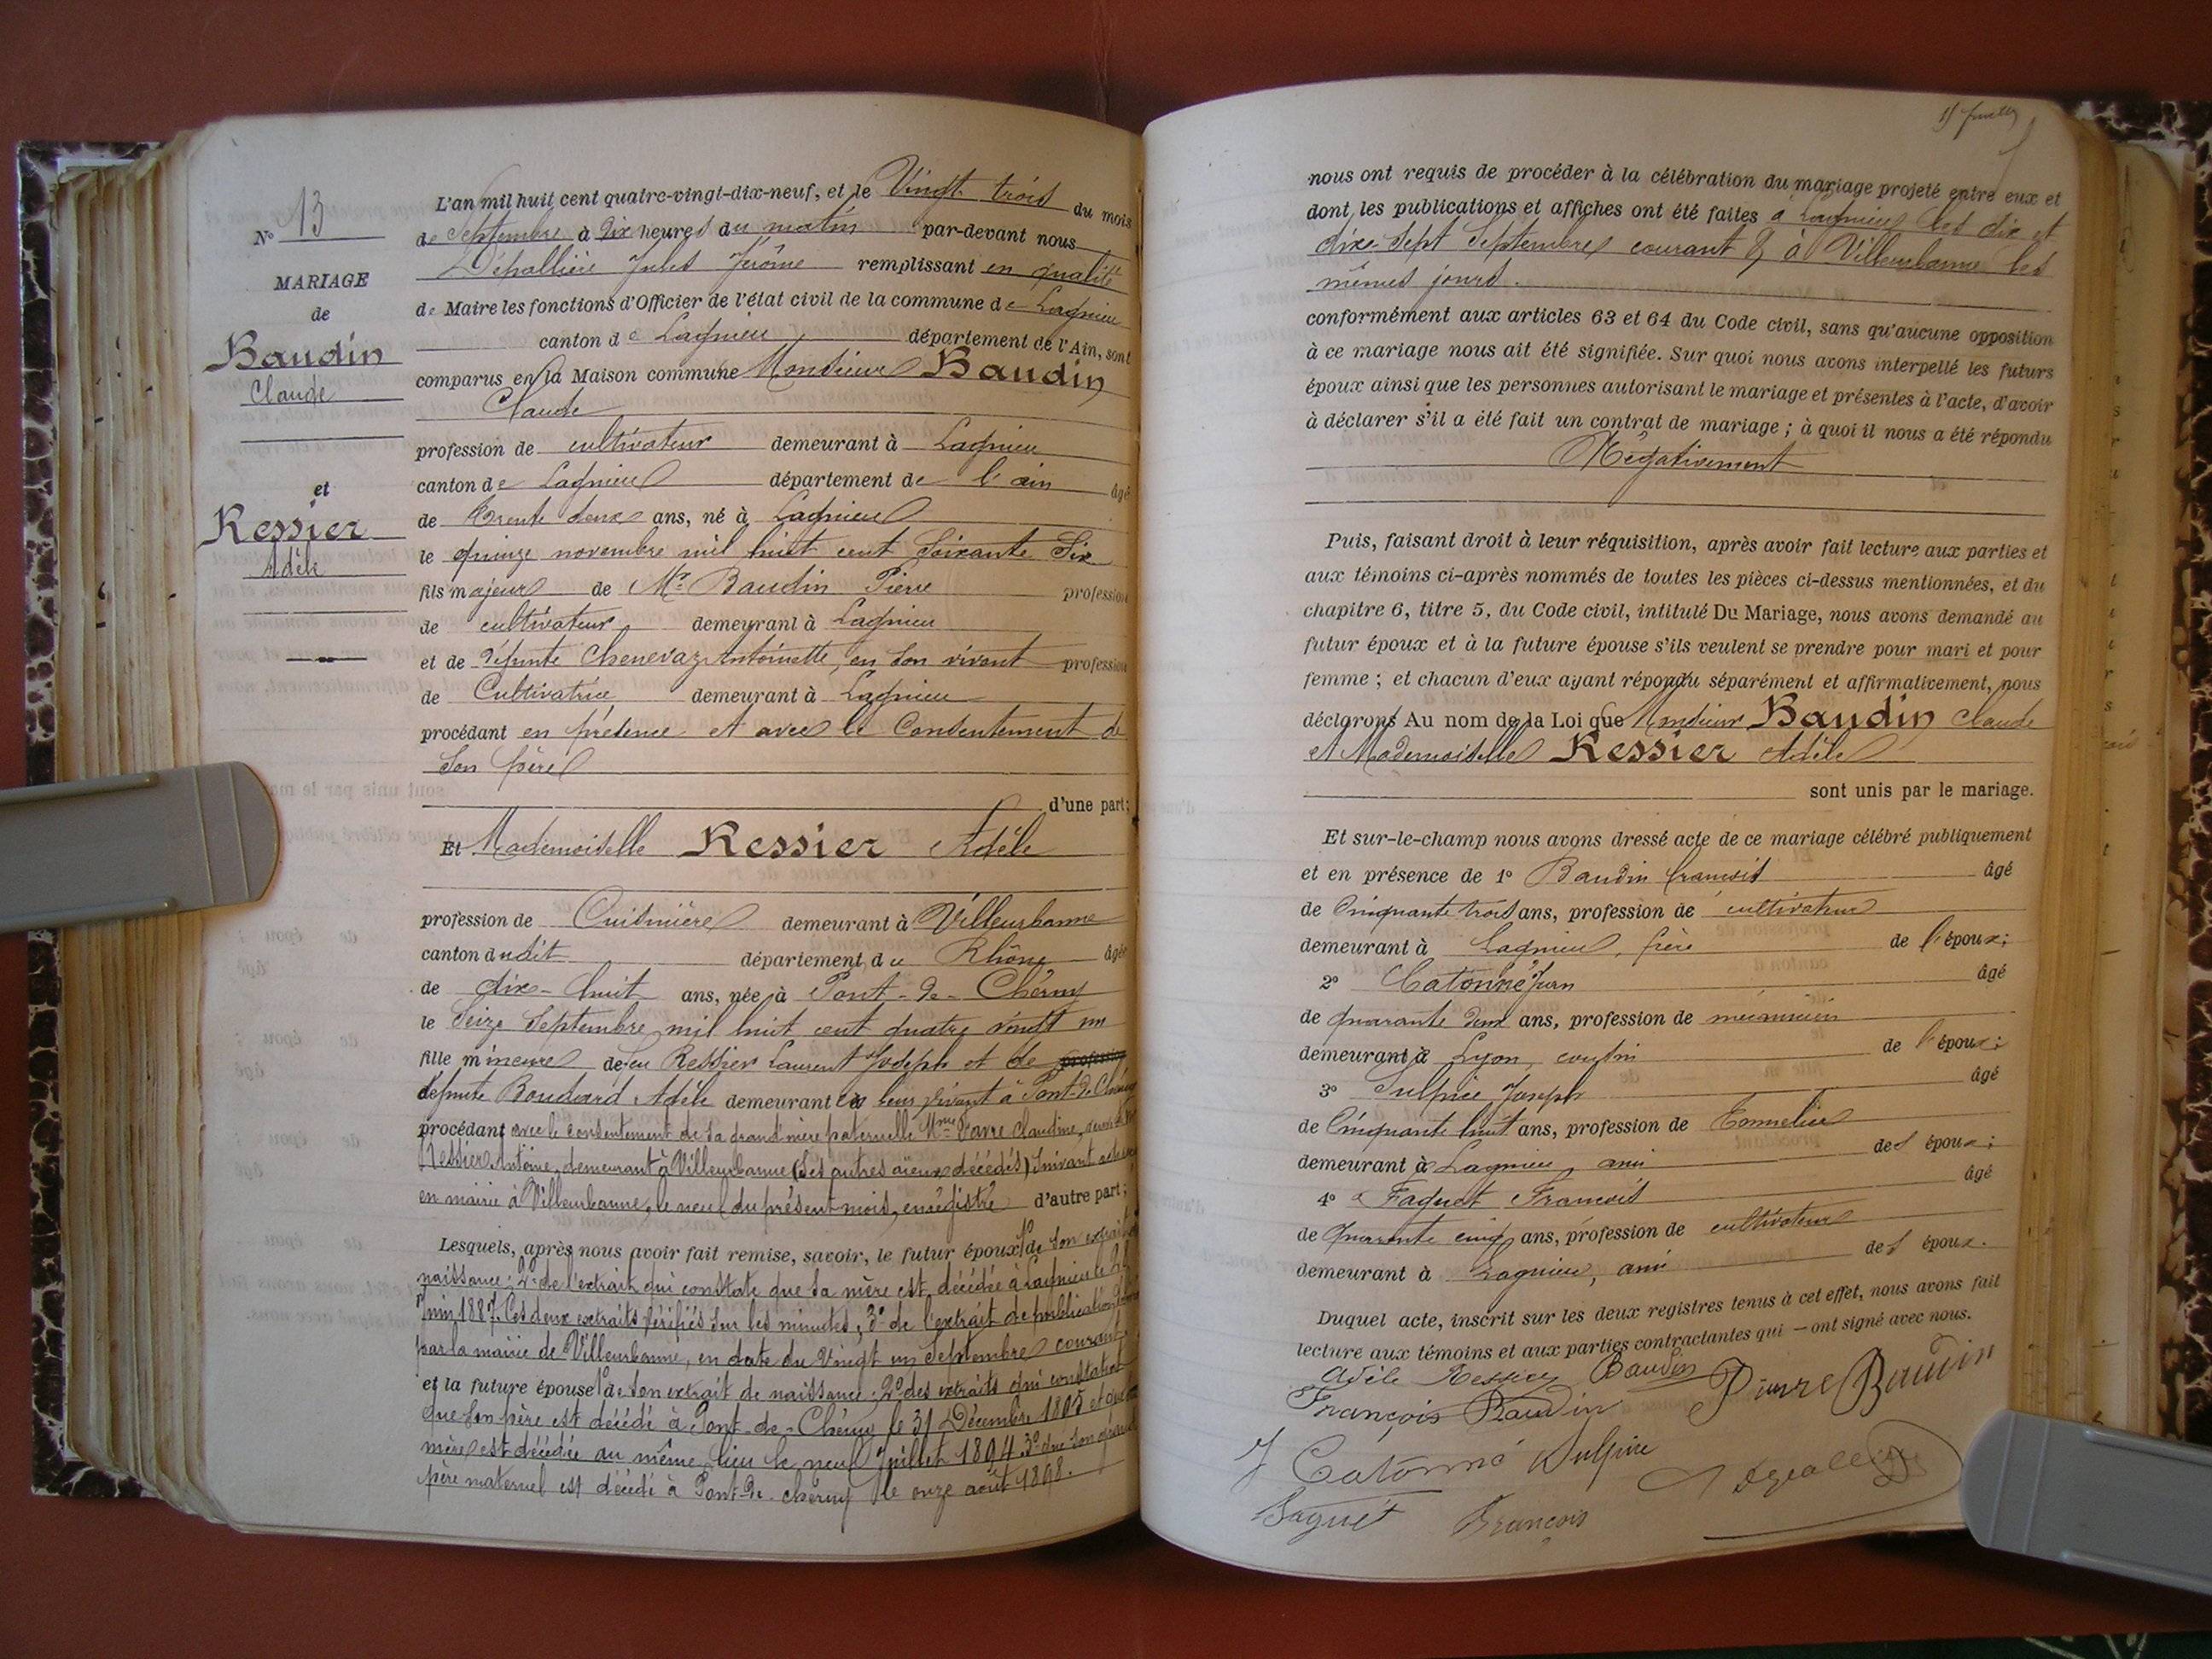 N° 13
MARIAGE
de
Baudin
Claude
et
Ressier
Adèle
L'an mil huit cent quatre-vingt-dix-neuf, et le Vingt trois du mois
de Septembre à Dix heures du matin par-devant nous
Jules Jérôme remplissant en qualité
de Maire les fonctions d'Officier de l'état civil de la commune de Lagnieu
canton de Lagnieu département de l'Ain, sont
comparus en la Maison commune Monsieur Baudin
Claude
profession de cultivateur demeurant à Lagnieu
canton de Lagnieu département de l'ain âgé
de Trente deux ans, né à Lagnieu
le quinze novembre mil huit cent soixante Six
fils majeur de Mr Baudin Pierre profession
de cultivateur demeurant à Lagnieu
et de défunte Chenevaz Antoinette, en son vivant profession
de Cultivatrice demeurant à Lagnieu
procédant en présence et avec le Consentement de
son père
d'une part;
Et Mademoiselle Ressier Adèle
profession de Cuisinière demeurant à Villeurbanne
canton dudit département du Rhône âgée
de dix-huit ans, née à Pont-de-Chéruy
le Seize Septembre mil huit cent quatre vingt un
fille mineure de feu Ressier Laurent Joseph et de profession
défunte Boudard Adèle demeurant leur vivant à Pont-de-Chéruy
procédant avec le consentement de sa grand'mère paternelle Mme Favre Claudine, veuve de
Ressier Antoine, demeurant à Villeurbanne (ses autres aïeux décédés) suivant acte
en mairie à Villeurbanne, le neuf du présent mois, enregistré d'autre part;
Lesquels, après nous avoir fait remise, savoir, le futur époux 1° de son extrait de
naissance; 2° de l'extrait qui constate que sa mère est décédée à Lagnieu le
Juin 1887. Ces deux extraits vérifiés sur les minutes; 3° de l'extrait de publication
par la mairie de Villeurbanne, en date du Vingt un Septembre courant
et la future épouse 1° de son extrait de naissance; 2° des extraits qui constatent
que son père est décédé à Pont-de-Chéruy le 31 Décembre et que sa
mère est décédée au même lieu le neuf Juillet 1894. 3° que son grand
père maternel est décédé à Pont-de-chéruy le onze août 1898.
nous ont requis de procéder à la célébration du mariage projeté entre eux et
dont les publications et affiches ont été faites à Lagnieu les dix et
dix-sept Septembre courant & à Villeurbanne les
mêmes jours.
conformément aux articles 63 et 64 du Code civil, sans qu'aucune opposition
à ce mariage nous ait été signifiée. Sur quoi nous avons interpellé les futurs
époux ainsi que les personnes autorisant le mariage et présentes à l'acte, d'avoir
à déclarer s'il a été fait un contrat de mariage; à quoi il nous a été répondu
Négativement
Puis, faisant droit à leur réquisition, après avoir fait lecture aux parties et
aux témoins ci-après nommés de toutes les pièces ci-dessus mentionnées, et du
chapitre 6, titre 5, du Code civil, intitulé Du Mariage, nous avons demandé au
futur époux et à la future épouse s'ils veulent se prendre pour mari et pour
femme; et chacun d'eux ayant répondu séparément et affirmativement, nous
déclarons Au nom de la Loi que Monsieur Baudin Claude
et Mademoiselle Ressier Adèle
sont unis par le mariage.
Et sur-le-champ nous avons dressé acte de ce mariage célébré publiquement
et en présence de 1° Baudin françois âgé
de Cinquante trois ans, profession de cultivateur
demeurant à Lagnieu, frère de l'époux;
2° Catonné Jean âgé
de quarante deux ans, profession de mécanicien
demeurant à Lyon, cousin de l'époux;
3° Sulpice Joseph âgé
de Cinquante huit ans, profession de Tonnelier
demeurant à Lagnieu, ami des époux;
4° Faguet François âgé
de Quarante cinq ans, profession de cultivateur
demeurant à Lagnieu, ami des époux.
Duquel acte, inscrit sur les deux registres tenus à cet effet, nous avons fait
lecture aux témoins et aux parties contractantes qui — ont signé avec nous.
Adèle Ressier Baudin Pierre Baudin
François Baudin
J Catonné Sulpice
Faguet François